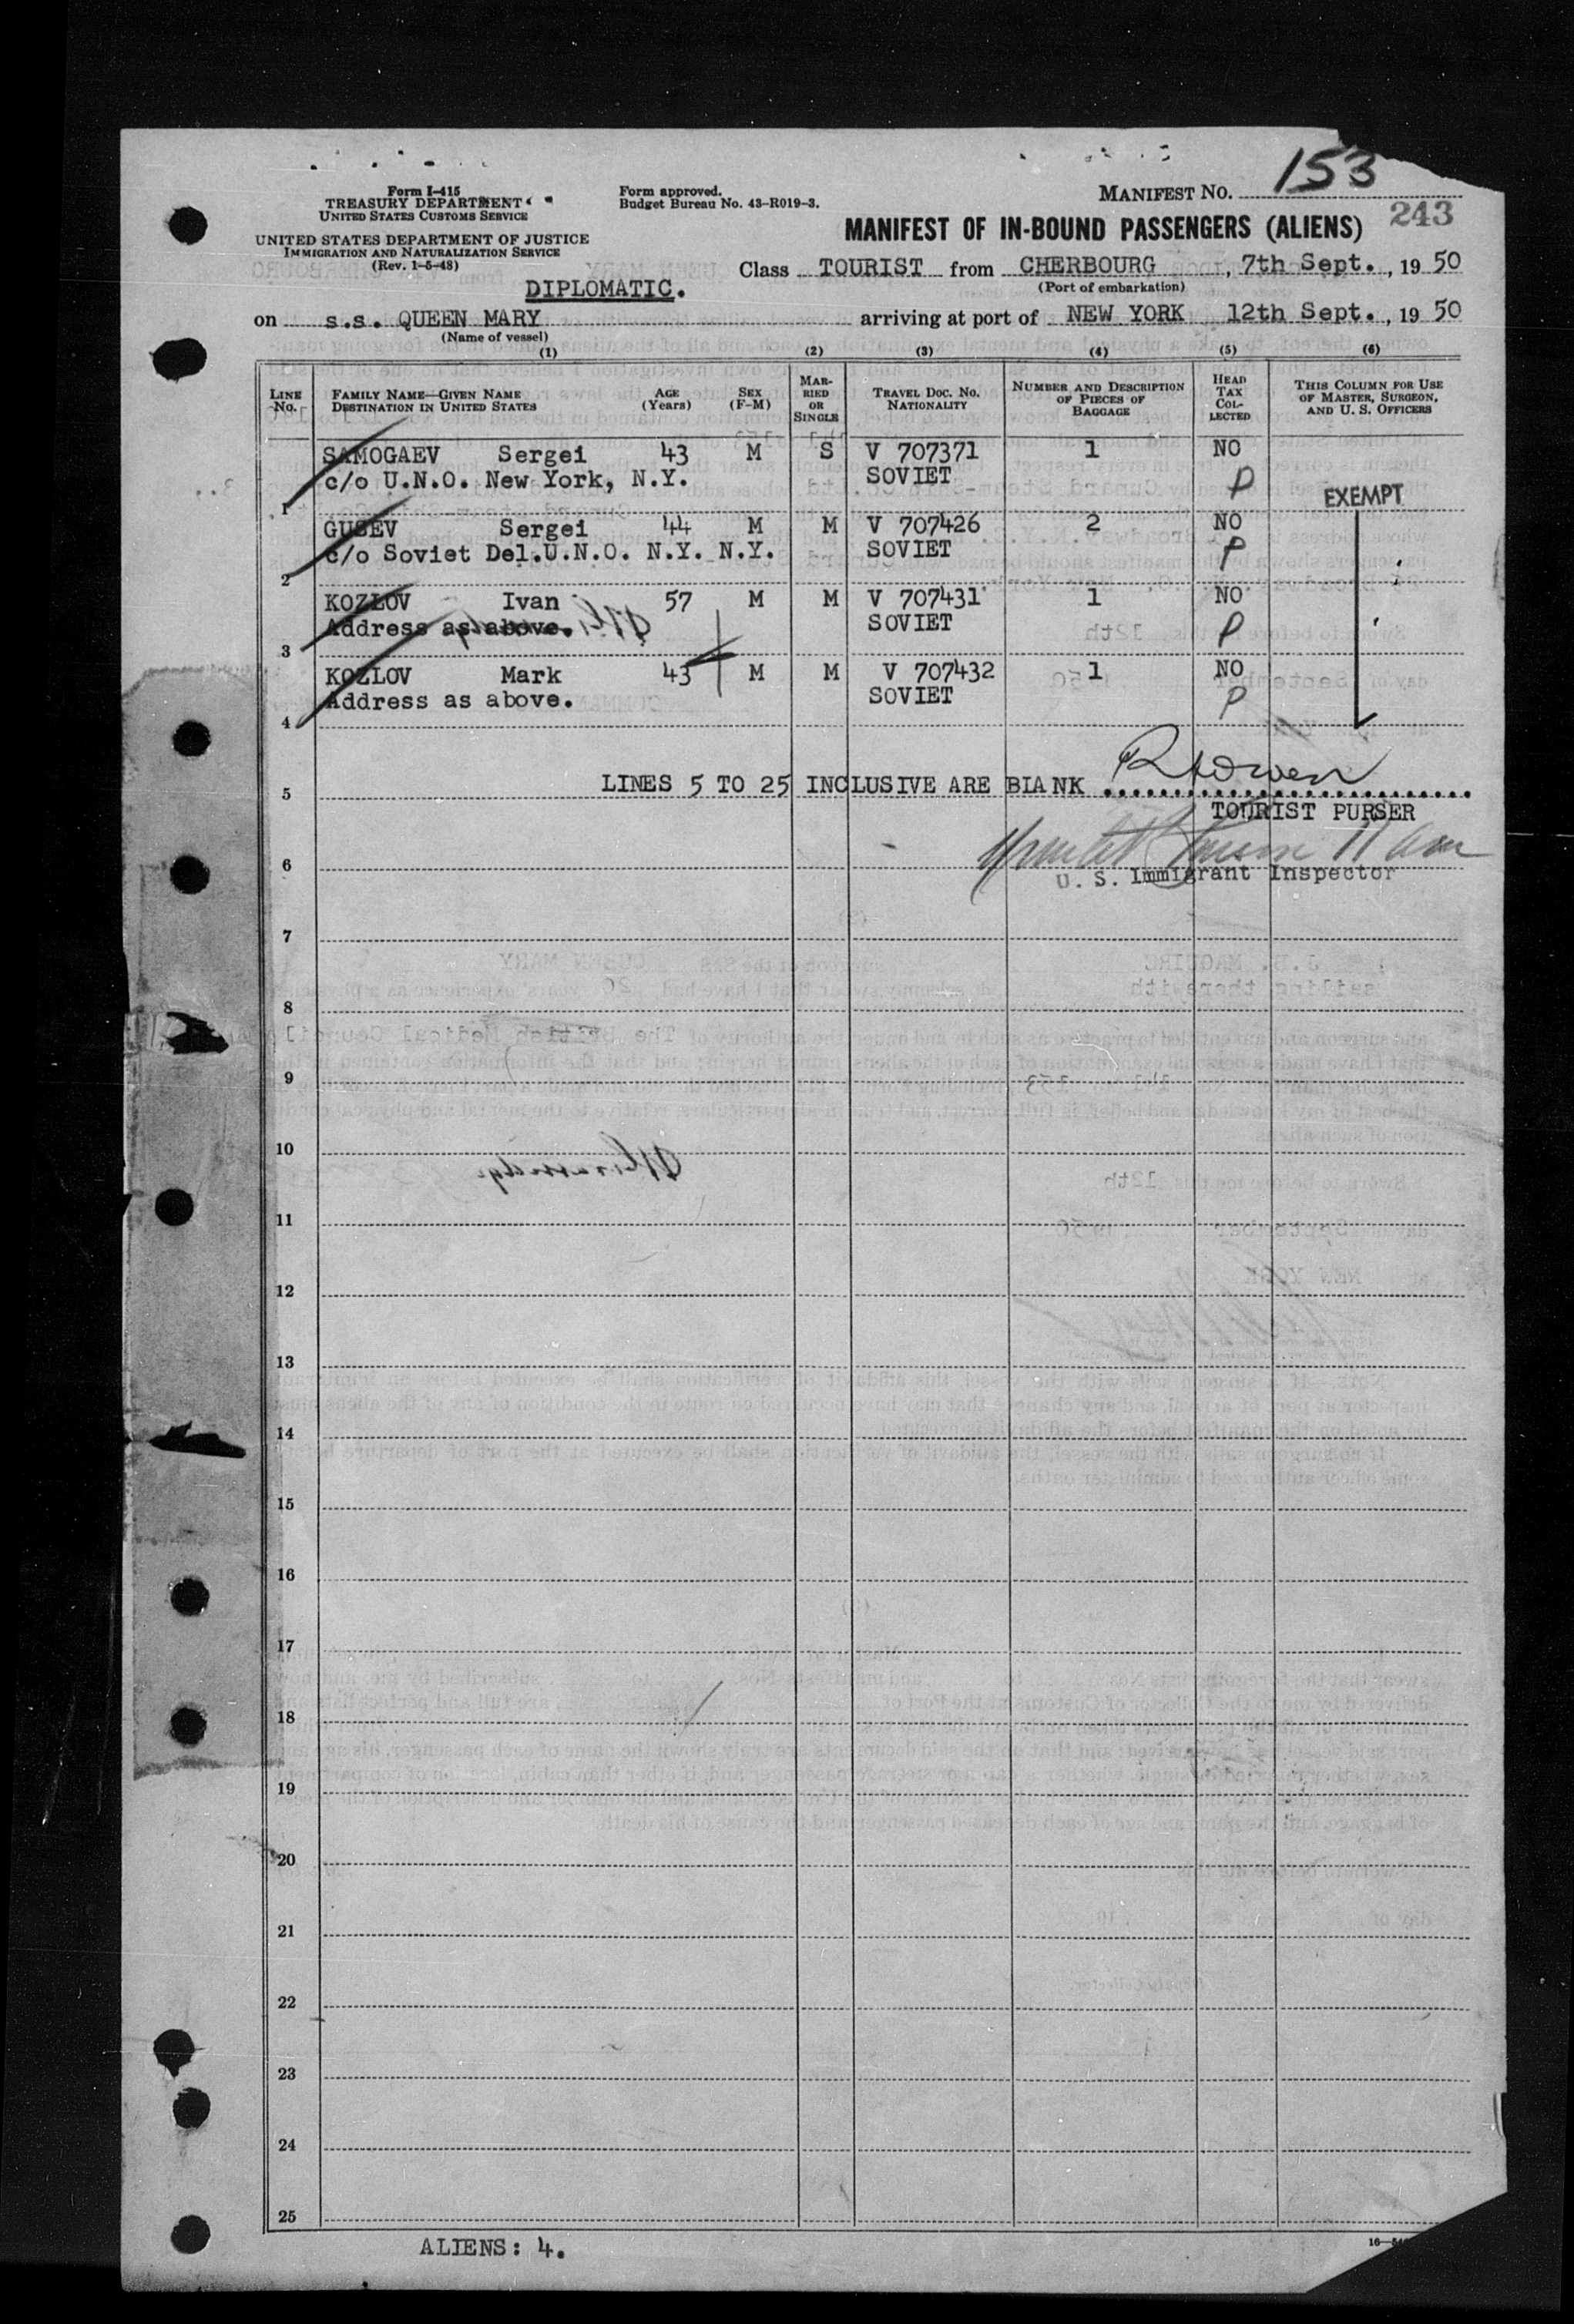 153
Form I-415
TREASURY DEPARTMENT
UNITED STATES CUSTOMS SERVICE
Form approved.
Budget Bureau No. 43-R019-3.
MANIFEST NO.
243
UNITED STATES DEPARTMENT OF JUSTICE
IMMIGRATION AND NATURALIZATION SERVICE
(Rev. 1-5-48)
MANIFEST OF IN-BOUND PASSENGERS (ALIENS)
Class TOURIST from CHERBOURG, 7th Sept., 1950
(Port of embarkation)
DIPLOMATIC.
on s.s. QUEEN MARY arriving at port of NEW YORK 12th Sept., 1950
(Name of vessel)
(1) (2) (3) (4) (5) (6)
LINE No. FAMILY NAME—GIVEN NAME DESTINATION IN UNITED STATES AGE (Years) SEX (F-M) MARRIED OR SINGLE TRAVEL DOC. NO. NATIONALITY NUMBER AND DESCRIPTION OF PIECES OF BAGGAGE HEAD TAX COLLECTED THIS COLUMN FOR USE OF MASTER, SURGEON, AND U. S. OFFICERS
SAMOGAEV Sergei 43 M S V 707371 1 NO
c/o U.N.O. New York, N.Y. SOVIET P EXEMPT
1
GUSEV Sergei 44 M M V 707426 2 NO
c/o Soviet Del.U.N.O. N.Y. N.Y. SOVIET P
2
KOZLOV Ivan 57 M M V 707431 1 NO
Address as above. SOVIET P
3
KOZLOV Mark 43 M M V 707432 1 NO
Address as above. SOVIET P
4
5 LINES 5 TO 25 INCLUSIVE ARE BLANK
TOURIST PURSER
6
U. S. Immigrant Inspector
7
8
9
10
11
12
13
14
15
16
17
18
19
20
21
22
23
24
25
ALIENS: 4.